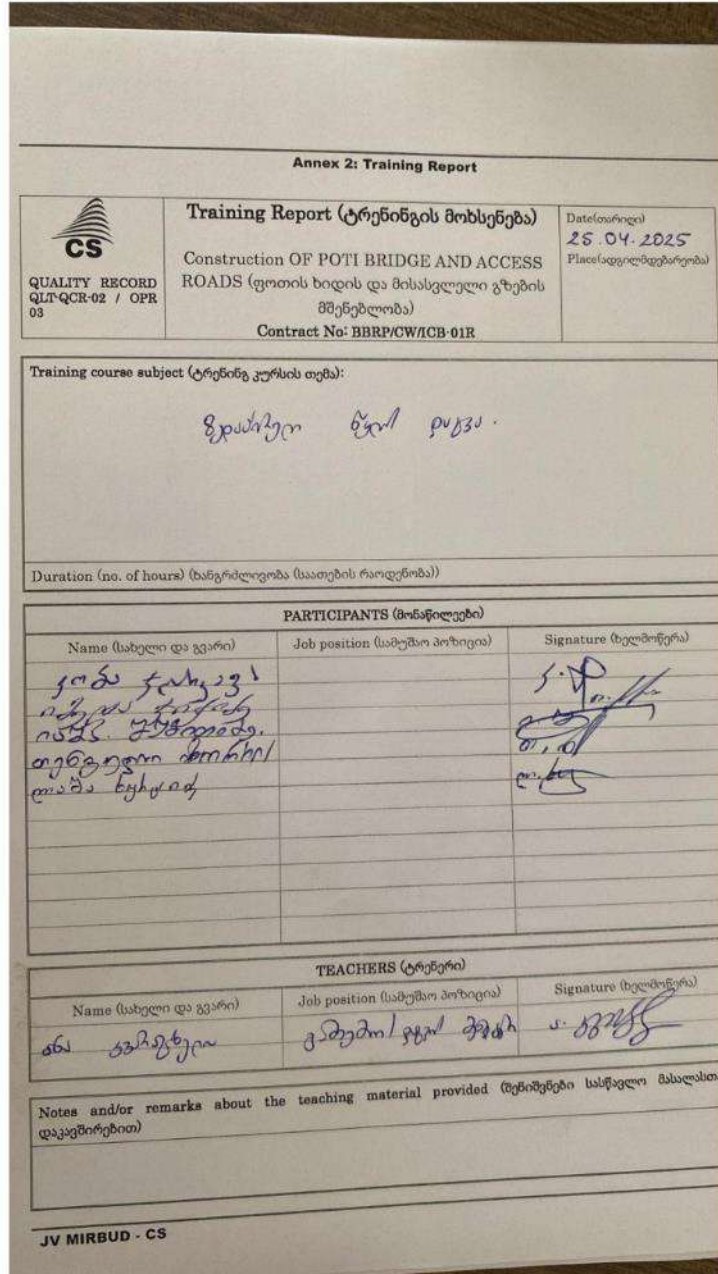 Annex 2: Training Report
CS
QUALITY RECORD
QLT-QCR-02 / OPR
03
Training Report (ტრენინგის მოხსენება)
Construction OF POTI BRIDGE AND ACCESS
ROADS (ფოთის ხიდის და მისასვლელი გზების
მშენებლობა)
Contract No: BBRP/CW/ICB-01R
Date(თარიღი)
25.04.2025
Place(ადგილმდებარეობა)
Training course subject (ტრენინგ კურსის თემა):
ზედაპირული წყლის დაცვა.
Duration (no. of hours) (ხანგრძლივობა (საათების რაოდენობა))
PARTICIPANTS (მონაწილეები)
Name (სახელი და გვარი)
Job position (სამუშაო პოზიცია)
Signature (ხელმოწერა)
კობა
თენგიზ
ლაშა
TEACHERS (ტრენერი)
Name (სახელი და გვარი)
Job position (სამუშაო პოზიცია)
Signature (ხელმოწერა)
ანა
გარემოს დაცვის
Notes and/or remarks about the teaching material provided (შენიშვნები სასწავლო მასალასთა
დაკავშირებით)
JV MIRBUD - CS